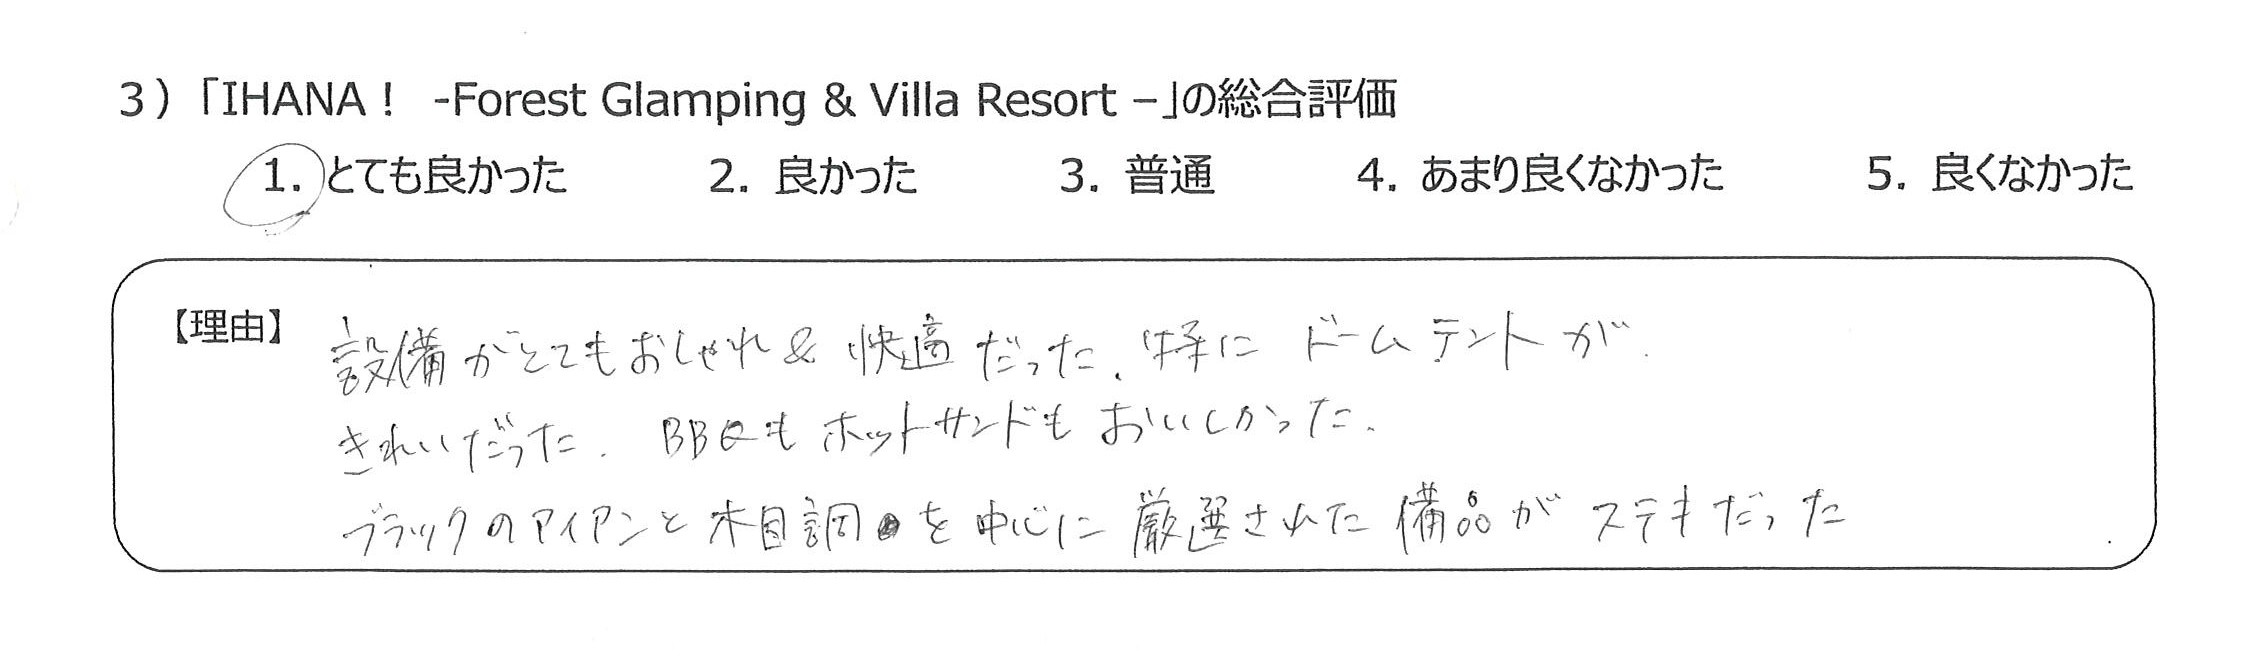 3）「IHANA！ -Forest Glamping & Villa Resort –」の総合評価
1. とても良かった 2. 良かった 3. 普通 4. あまり良くなかった 5. 良くなかった
【理由】
設備がとてもおしゃれ&快適だった。特にドームテントが
きれいだった。BBQもホットサンドもおいしかった。
ブラックのアイアンと木目調を中心に厳選された備品がステキだった